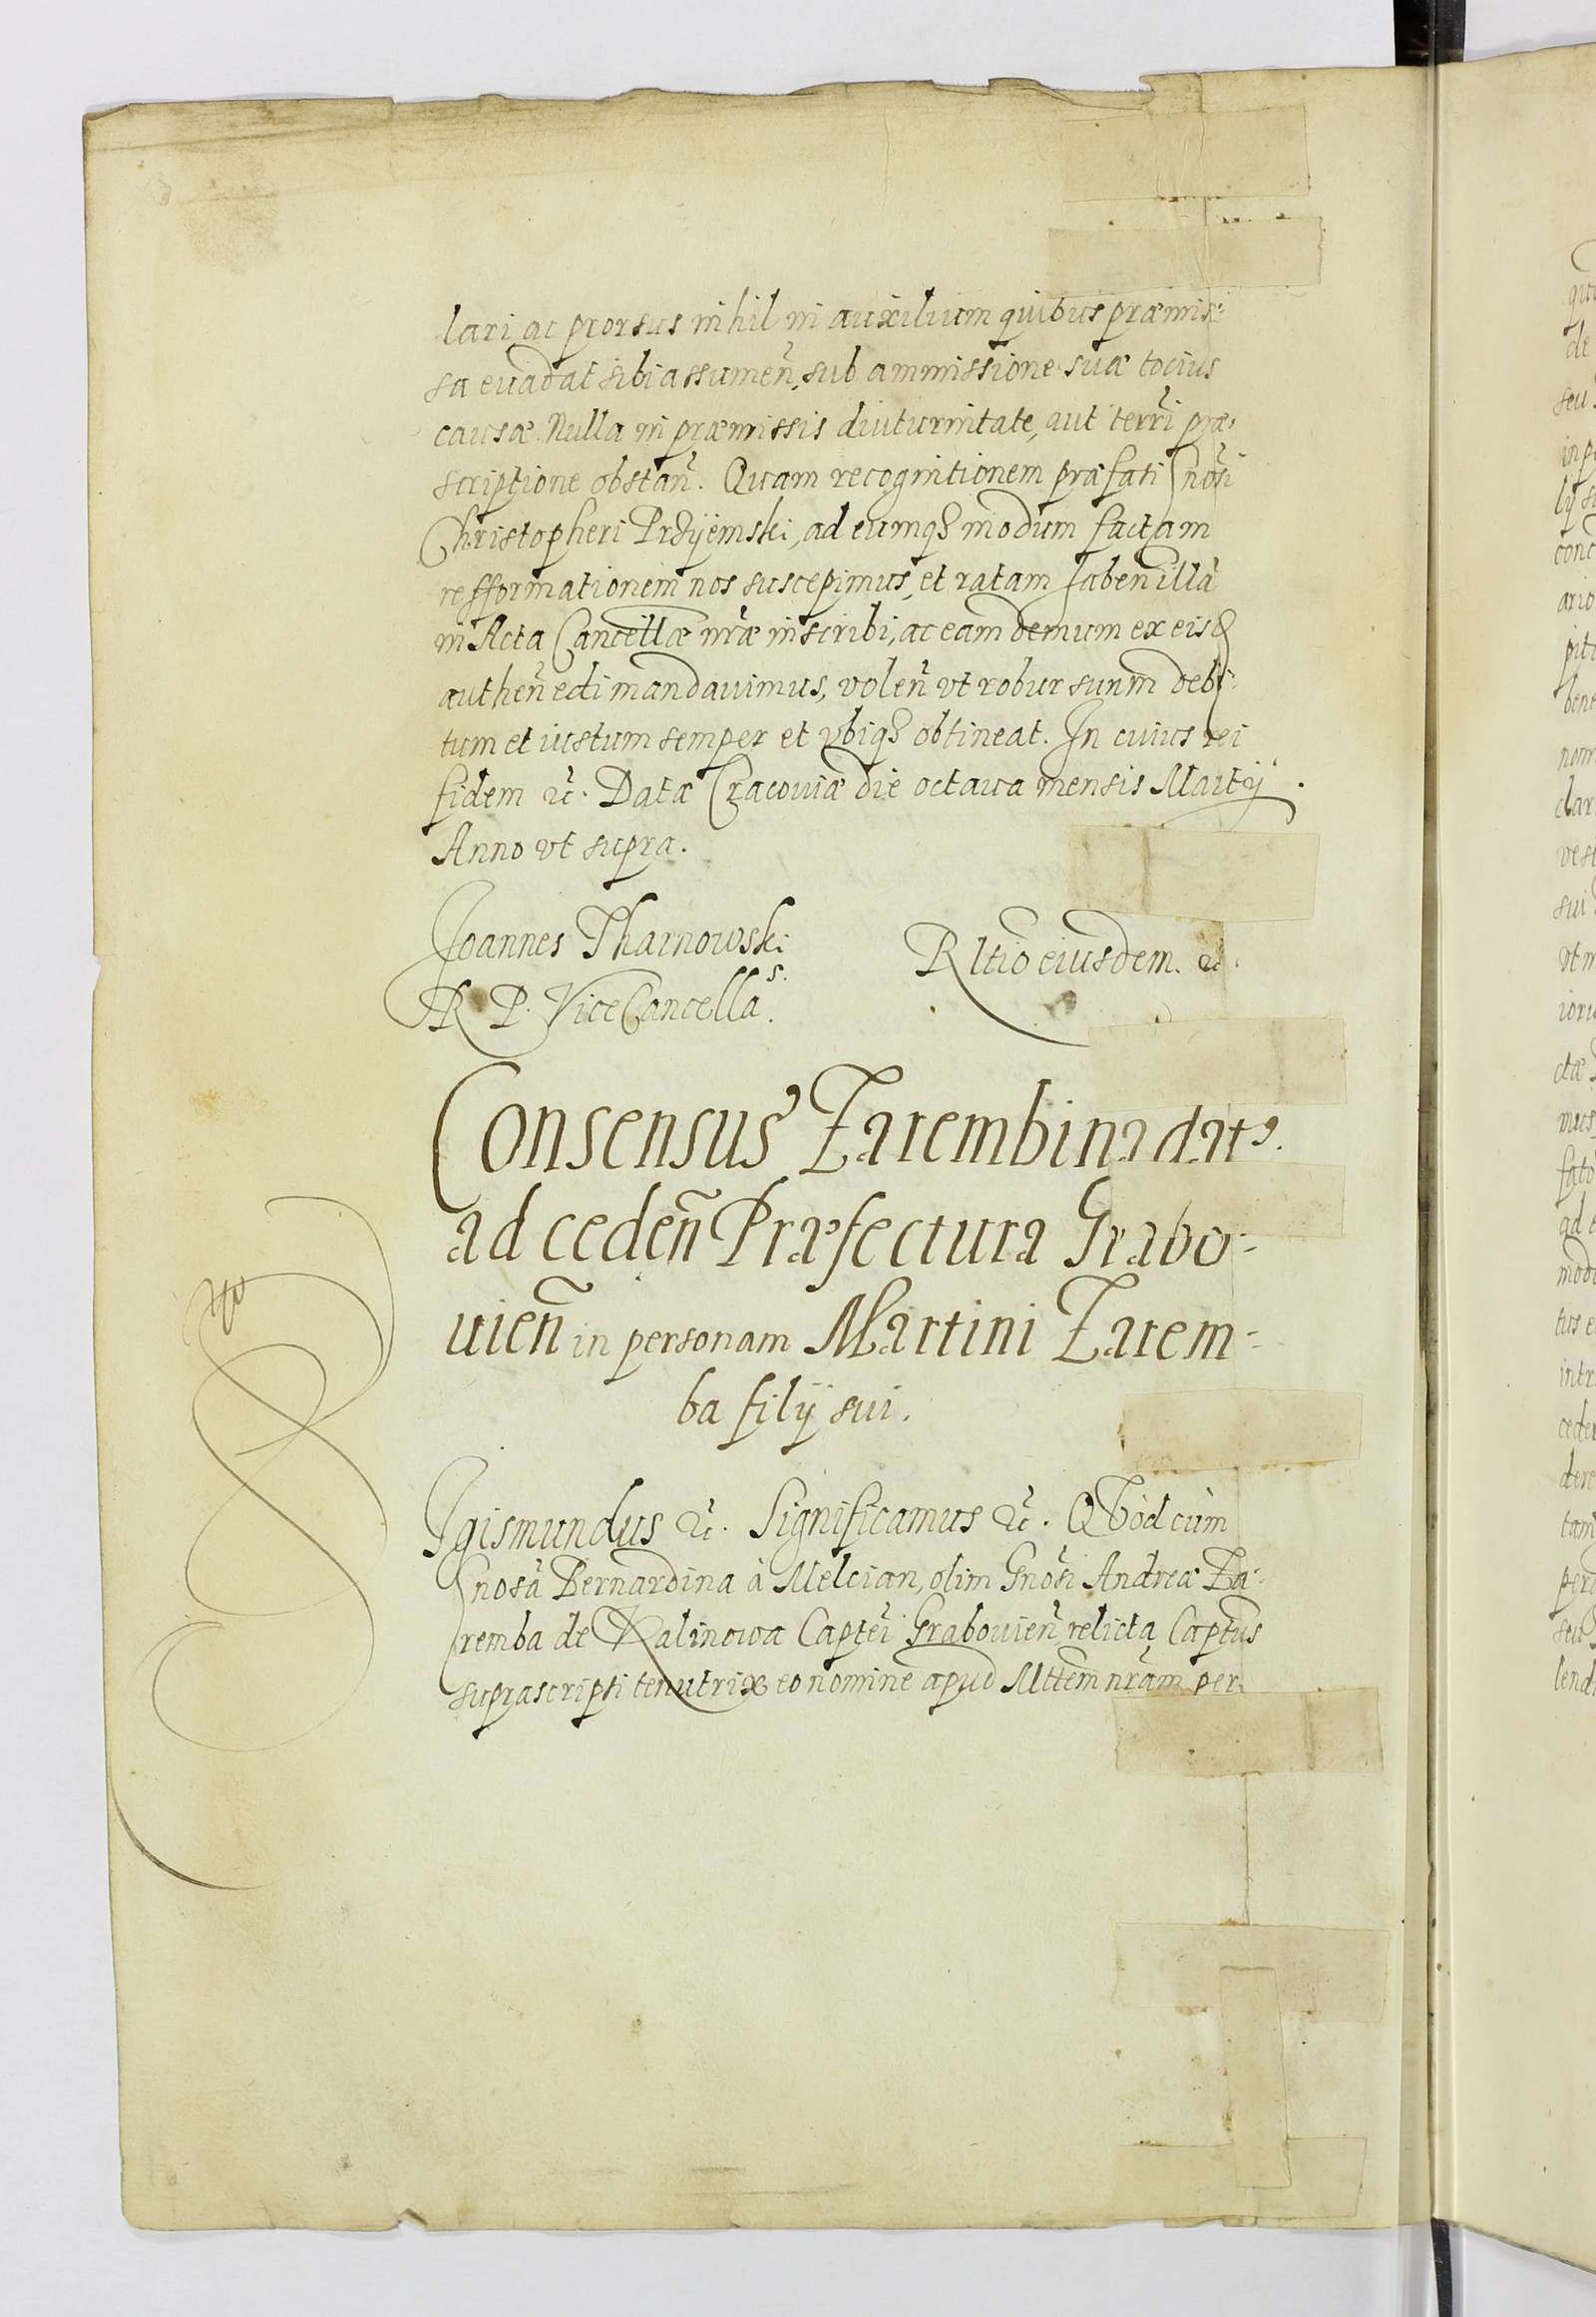 lari, ac prorsus nihil in auxilium quibus præmis:
sa euadat sibi assumen̄, sub ammissione suæ tocius
causæ. Nulla in præmissis diuturnitate, aut terrī præ:
scriptione obstan̄. Quam recognitionem præfati Gnōsi
Christopheri Przÿemski, ad eumq3 modum factam
refformationem nos suscepimus, et ratam haben̄ illā
in Acta Cancellæ nr̄æ inscribi, ac eam demum ex eisd
authen̄ edi mandauimus, volen̄ vt robur suum debi:
tum et iustum semper et vbiq3 obtineat. In cuius rei
fidem &c̄. Datæ Cracouiæ die octaua mensis Martÿ.
Anno vt supra.
Joannes Tharnowski
R P. ViceCancellās.
Rltīo eiusdem. &c.
Consensus Zarembina dat9.
ad ceden̄ Præfectura Grabo:
uien̄ in personam Martini Zarem:
ba filÿ sui.
Sgismundus &c̄. Significamus &c̄. QVòd cùm
Gnosā Bernardina à Melcian, olim Gnōsi Andreæ Za:
remba de Kalinowa Captēi Grabouien̄ relicta, Captūs
suprascripti tenutrix eo nomine apud Mttēm nrām per